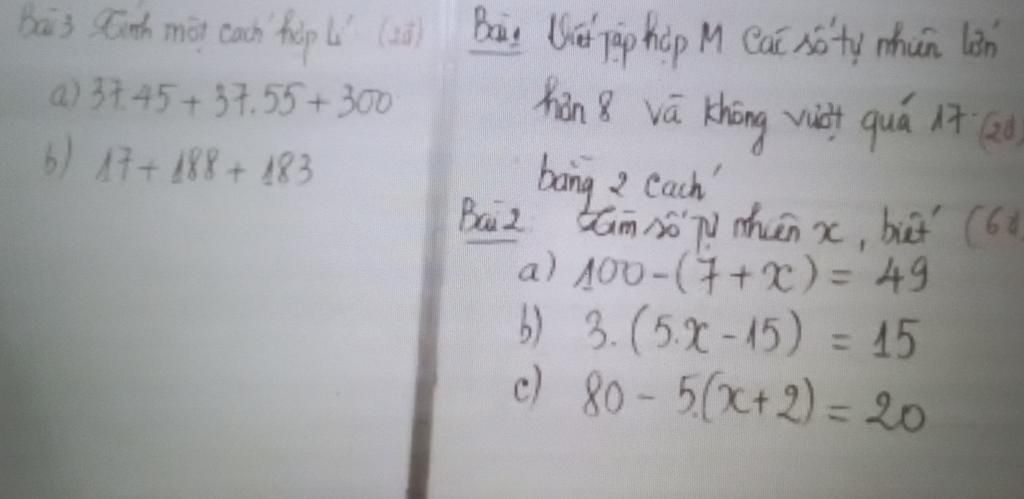 Bài 1 Viết tập hợp M các số tự nhiên lớn
hơn 8 và không vượt quá 17. (2đ)
bằng 2 cách
Bài 2 Tìm số tự nhiên x, biết (6đ)
a) 100-(7+x) = 49
b) 3.(5.x-15) = 15
c) 80 - 5.(x+2) = 20
Bài 3 Tính một cách hợp lí (2đ)
a) 37.45 + 37.55 + 300
b) 17 + 188 + 183